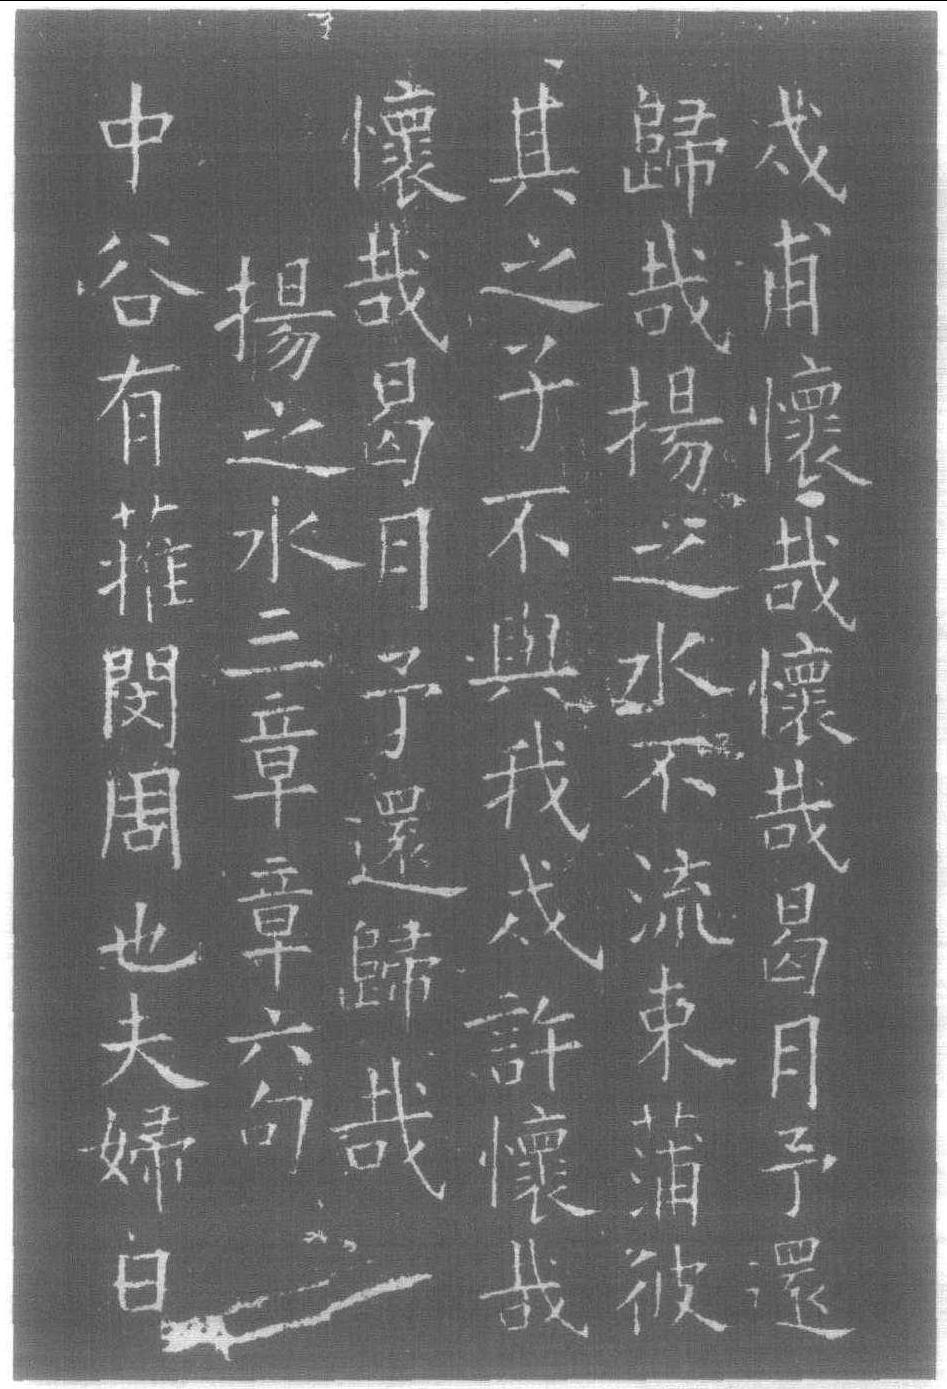 戍甫懷哉懷哉曷月予還
歸哉揚之水不流束蒲彼
其之子不與我戍許懷哉
懷哉曷月予還歸哉
揚之水三章章六句
中谷有蓷閔周也夫婦日